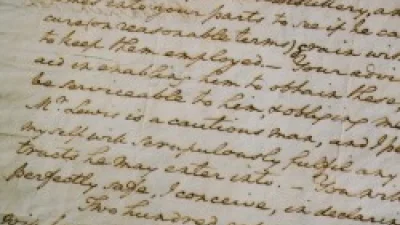 into your parts to see if he ca
cure (on reasonable terms) grain
to keep them employed.— Your advi
aid in enabling him to obtain these
be serviceable to him, & obliging me
Mr. Lewis is a cautious man, and I
myself will scrupulously fulfil any
tracts he may enter into. — You
perfectly safe, I conceive, in declarin
Two hundred